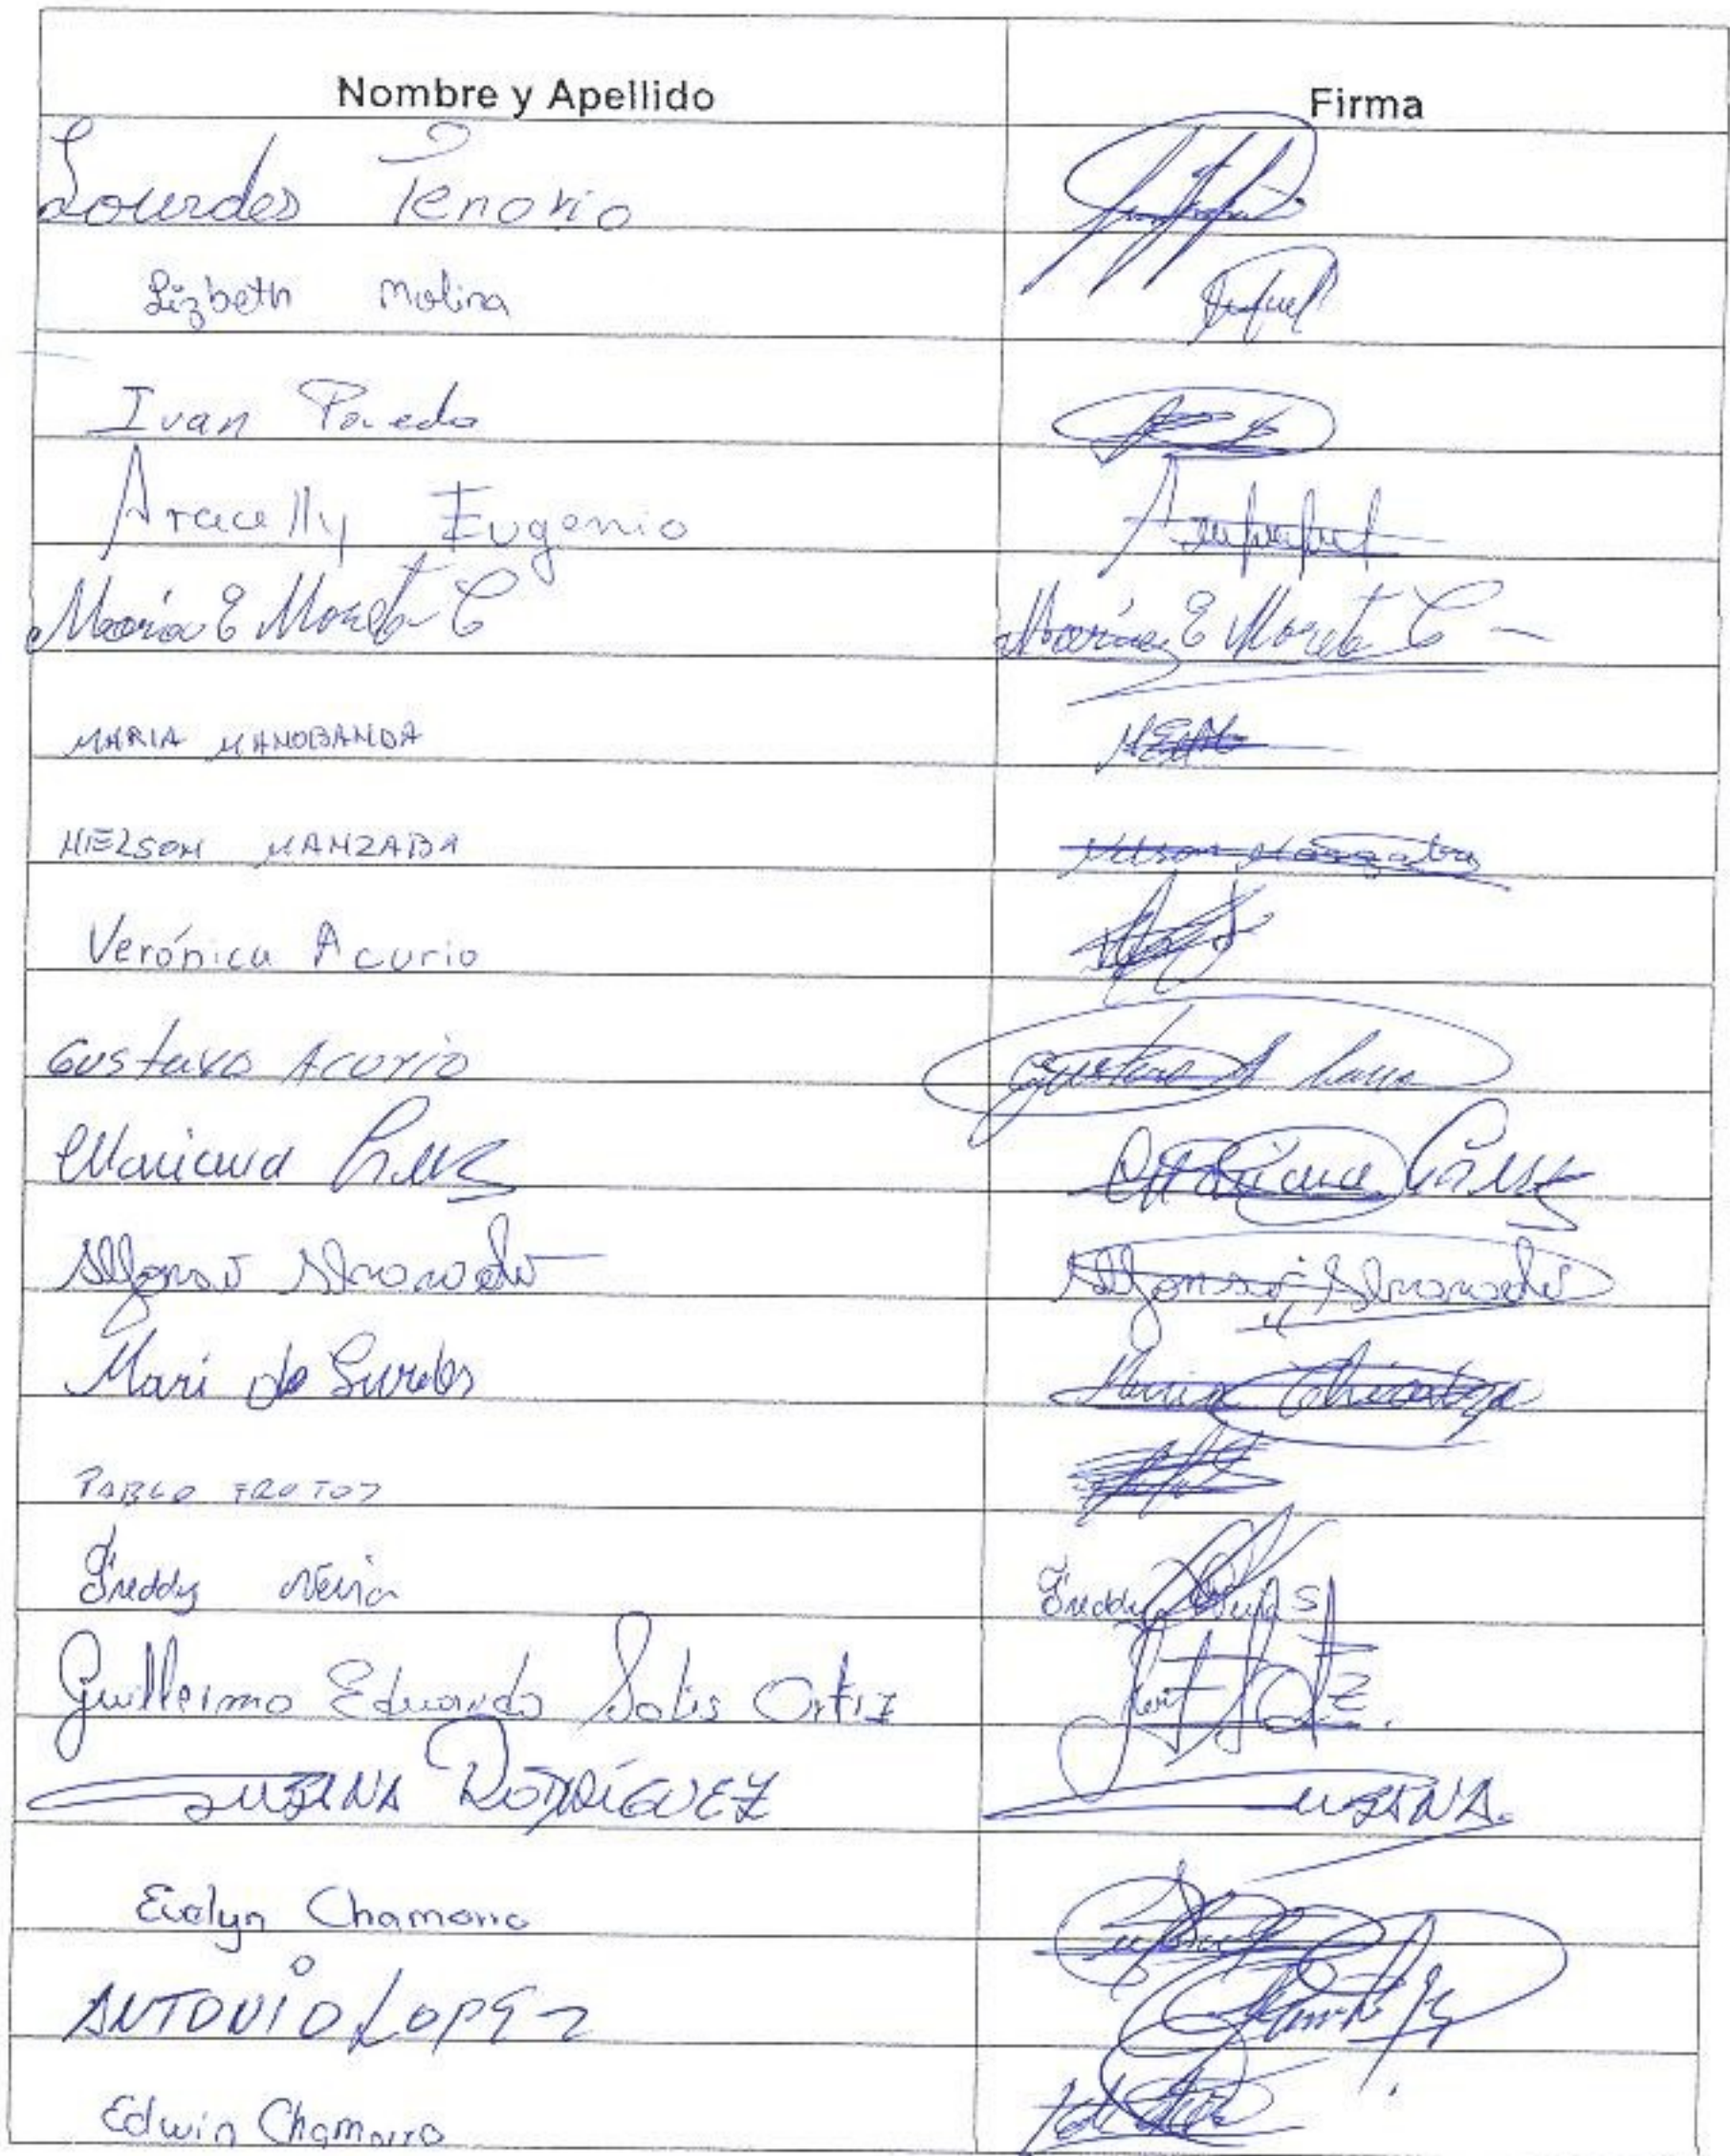 Nombre y Apellido Firma
Lourdes Tenorio
Lizbeth Molina
Ivan Paredo
Aracelly Eugenio
María E Moreta C María E Moreta C
MARIA MANOBANDA
NELSON MANZABA Nelson Manzaba
Verónica Acurio
Gustavo Acurio Gustavo A
Mariana Cruz Mariana Cruz
Alfonso Alvarado Alfonso Alvarado
Mari de Lurdes Maria
PABLO FRUTOS
Freddy Neira Freddy
Guillermo Eduardo Solis Ortiz
SUSANA RODRÍGUEZ SUSANA.
Evelyn Chamorro
ANTONIO LOPEZ
Edwin Chamorro